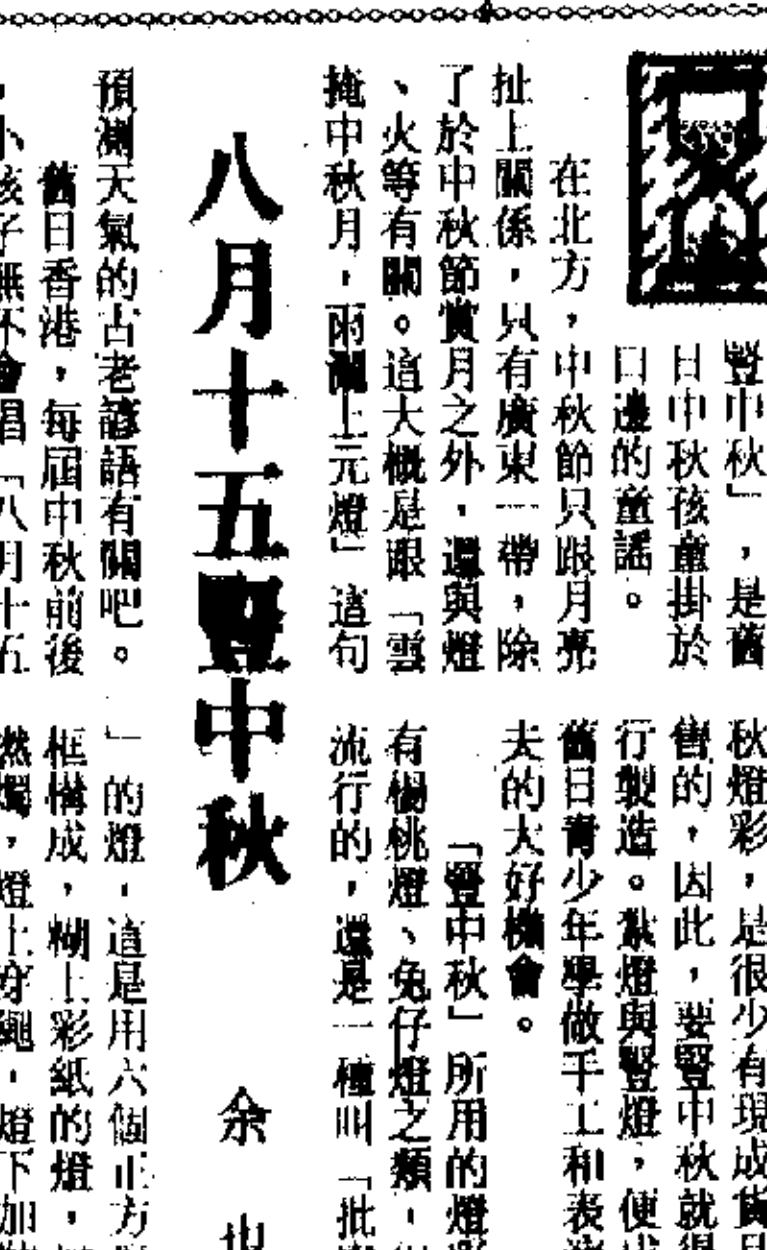 八月十五豎中秋
余
豎中秋」,是舊
日中秋孩童掛於
口邊的童謠。
在北方,中秋節只跟月亮
扯上關係,只有廣東一帶,除
了於中秋節賞月之外,還與燈
、火等有關。這大概是跟「雲
掩中秋月,雨灑上元燈」這句
預測天氣的古老諺語有關吧。
舊日香港,每屆中秋前後
,小孩子無不會唱「八月十五
秋燈彩,是很少有現成貨
售的,因此,要豎中秋就得
行製造。紮燈與豎燈,便成
舊日青少年學做手工和表
夫的大好機會。
「豎中秋」所用的燈
有楊桃燈、兔仔燈之類,
流行的,還是一種叫「批
」的燈,這是用六個正方
框構成,糊上彩紙的燈,
燃燭,燈上穿繩,燈下加